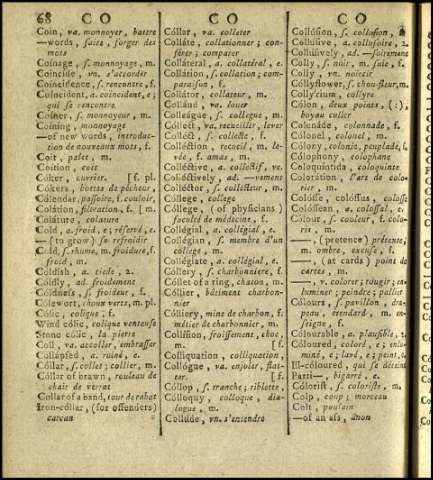 68 C O C O C O
Coin, va. monnoyer, battre
—words, faire, forger des
mots
Coinage, ſ. monnoyage, m.
Coincide, vn. s'accorder
Coincidence, ſ. rencontre, f.
Coincident, a. coincident, e;
qui ſe rencontre
Coiner, ſ. monnoyeur, m.
Coining, monnoyage
—of new words, introduc-
tion de nouveaux mots, f.
Coit, palet, m.
Coition, coït
Coker, ouvrier. [f. pl.
Cokers, bottes de pêcheur,
Cólendar, paſſoire, f. couloir,
Colátion, filtration, f. [m.
Cólature, colature
Cold, a. froid, e; réſervé, e.
—(to grow) ſe refroidir
Cold, ſ. rhume, m. froidure, f.
froid, m.
Coldish, a. 2.
Cóldly, ad. froidement
Coldneſs, ſ. froideur, f.
Cólewort, choux verts, m. pl.
Cólic, colique, f.
Wind cólic, colique venteuse
Stone cólic, la pierre
Coll, va. accoller, embraſſer
Collápſed, a. ruiné, e.
Cóllar, ſ. collet; collier, m.
Cóllar of brawn, rouleau de
chair de verrat
Collar of a band, tour de rabat
Iron-cóllar, (for offenders)
carcan
Cóllar, va. colleter
Colláte, collationner; con-
férer; comparer
Colláteral, a. collatéral, e.
Collátion, ſ. collation; com-
paraiſon, f.
Collátor, collateur, m.
Colláud, va. louer
Colleágue, ſ. collegue, m.
Colléct, va. recueillir, lever
Colléct, ſ. collecte, f.
Colléction, recueil, m. le-
vée, f. amas, m.
Colléctive, a. collectif, ve.
Colléctively, ad. —vement
Colléctor, ſ. collecteur, m.
Cóllege, college
Cóllege, (of phyſicians)
faculté de médecine, f.
Collégial, a. collégial, e.
Collégian, ſ. membre d'un
college, m.
Collégiate, a. collégial, e.
Cóllery, ſ. charbonniere, f.
Cóllet of a ring, chaton, m.
Cóllier, bâtiment charbon-
nier
Cólliery, mine de charbon, f.
métier de charbonnier, m.
Colliſion, froiſſement, choc,
m. [f.
Colliquation, colliquation,
Collógue, va. enjoler, flat-
ter. [f.
Cóllop, ſ. tranche; riblette,
Cólloquy, colloque, dia-
logue, m.
Collúde, vn. s'entendre
Collúſion, ſ. colluſion, f.
Collúſive, a. colluſoire, 2.
Collúſively, ad. —ſoirement
Colly, ſ. noir, m. ſuie, f.
Colly, vn. noircir
Collyflower, ſ. choufleur, m.
Collyrium, collyre
Cólon, deux points, (:),
boyau culier
Colonáde, colonnade, f.
Cólonel, colonel, m.
Cólony, colonie, peuplade, f.
Cólophony, colophane
Coloquintida, coloquinte
Colorátion, l'art de colo-
rier, m.
Colóſſe, coloſſus, coloſſe
Coloſſean, a. coloſſal, e.
Cólour, ſ. couleur, f. colo-
ris, m.
—, (pretence) prétexte,
m. ombre, excuſe, f.
— (at cards) point de
cartes, m.
—, v. colorer; rougir; en-
luminer; peindre; pallier
Cólours, ſ. pavillon, dra-
peau, étendard, m. en-
ſeigne, f.
Cólourable, a. plauſible, 2.
Cóloured, colord, e; enlu-
miné, e; lavé, e; peint, e.
Ill-cóloured, qui ſe déteint
Parti—, bigarré, e.
Cóloriſt, ſ. coloriſte, m.
Colp, coup; morceau
Colt, poulain
—of an aſs, ânon